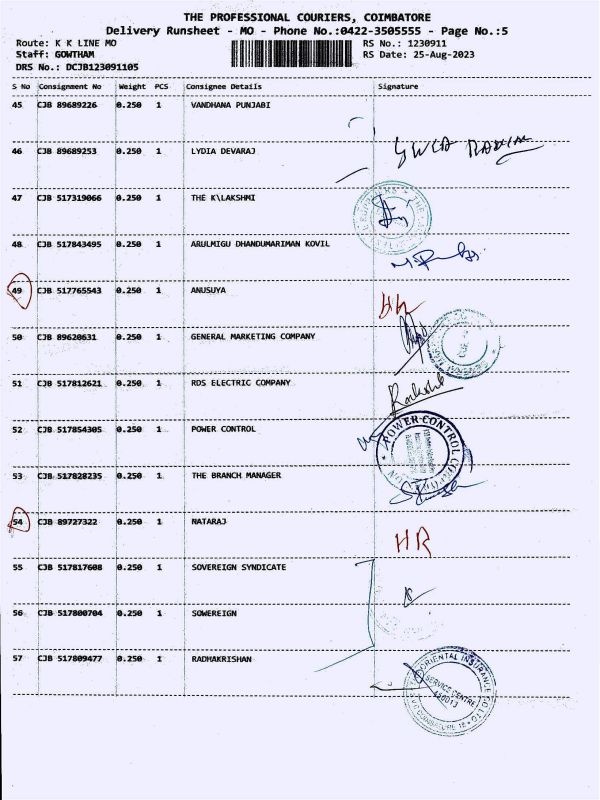 THE PROFESSIONAL COURIERS, COIMBATORE
Delivery Runsheet - MO - Phone No.:0422-3505555 - Page No.:5
Route: K K LINE MO RS No.: 1230911
Staff: GOWTHAM RS Date: 25-Aug-2023
DRS No.: DCJB123091105
S No Consignment No Weight PCS Consignee Details Signature
45 CJB 89689226 0.250 1 VANDHANA PUNJABI
46 CJB 89689253 0.250 1 LYDIA DEVARAJ
47 CJB 517319066 0.250 1 THE K\LAKSHMI
48 CJB 517843495 0.250 1 ARULMIGU DHANDUMARIMAN KOVIL
49 CJB 517765543 0.250 1 ANUSUYA
50 CJB 89620631 0.250 1 GENERAL MARKETING COMPANY
51 CJB 517812621 0.250 1 RDS ELECTRIC COMPANY
52 CJB 517854305 0.250 1 POWER CONTROL
POWER CONTROL
53 CJB 517828235 0.250 1 THE BRANCH MANAGER
54 CJB 89727322 0.250 1 NATARAJ
HR
55 CJB 517817608 0.250 1 SOVEREIGN SYNDICATE
56 CJB 517800704 0.250 1 SOWEREIGN
57 CJB 517809477 0.250 1 RADHAKRISHAN
ORIENTAL INSURANCE CO LTD
SERVICE CENTRE